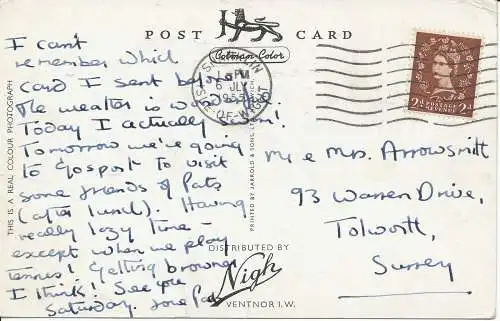 POST CARD
Cotman-Color
I can't
remember which
card I sent before
The weather is wonderful
Today I actually swam!
Tomorrow we're going
to Gosport to visit
some friends of Pats
(after lunch). Having
really lazy time -
except when we play
tennis! Getting browner
I think! See you
Saturday. love Pat
THIS IS A REAL COLOUR PHOTOGRAPH
PRINTED BY JARROLD & SONS, LTD.
PM
6 JLY
1955
ISLE-OF-WIGHT
POSTAGE REVENUE
2d 2d
Mr & Mrs. Arrowsmith
93 Warren Drive,
Tolworth,
Surrey
DISTRIBUTED BY
Nigh
VENTNOR I.W.